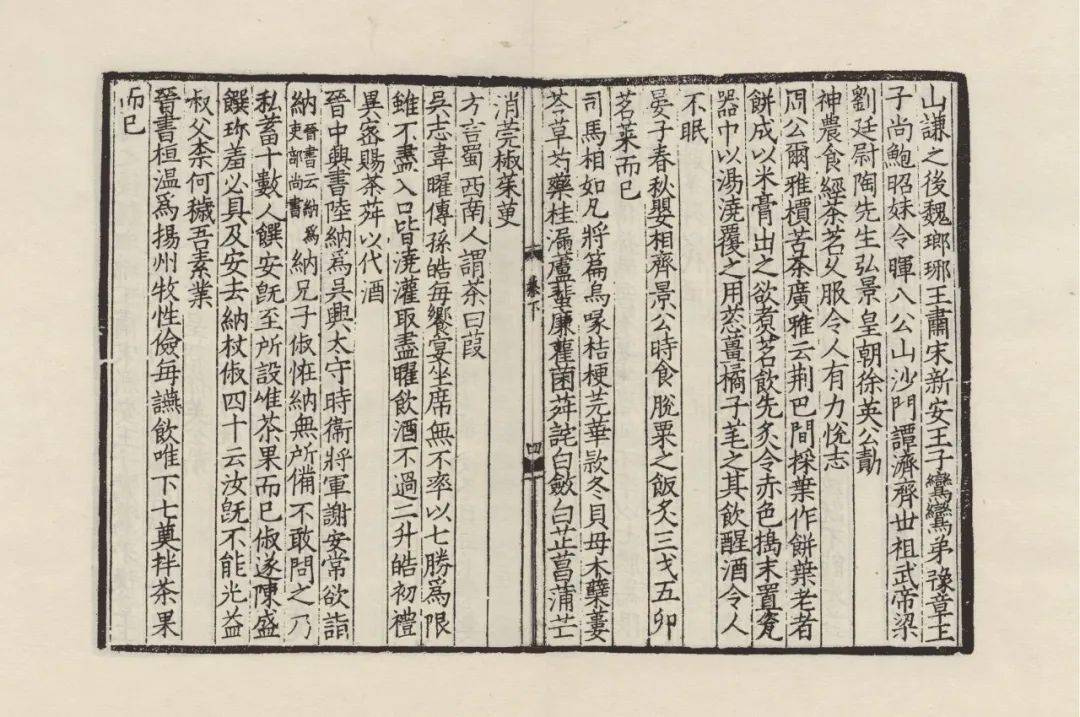 山謙之後魏瑯琊王肅宋新安王子鸞鸞弟豫章王
子尚鮑昭妹令暉八公山沙門譚濟齊世祖武帝梁
劉廷尉陶先生弘景皇朝徐英公勣
神農食經茶茗乆服令人有力恱志
周公爾雅檟苦茶廣雅云荆巴間採葉作餅葉老者
餅成以米膏出之欲煑茗飲先炙令赤色搗末置瓷
器中以湯澆覆之用葱薑橘子芼之其飲醒酒令人
不眠
晏子春秋嬰相齊景公時食脫粟之飯炙三戈五卯
茗菜而已
司馬相如凡將篇烏喙桔梗芫華款冬貝母木蘗蔞
芩草芍藥桂漏蘆蜚廉雚菌荈詫白斂白芷菖蒲芒
卷下
四
消莞椒茱萸
方言蜀西南人謂茶曰葭
吳志韋曜傳孫皓每饗宴坐席無不率以七勝爲限
雖不盡入口皆澆灌取盡曜飲酒不過二升皓初禮
異宻賜茶荈以代酒
晉中興書陸納爲吳興太守時衛將軍謝安常欲詣
納晉書云納爲吏部尚書納兄子俶恠納無所備不敢問之乃
私蓄十數人饌安旣至所設唯茶果而已俶遂陳盛
饌珎羞必具及安去納杖俶四十云汝旣不能光益
叔父柰何穢吾素業
晉書桓温爲揚州牧性儉每讌飲唯下七奠拌茶果
而已